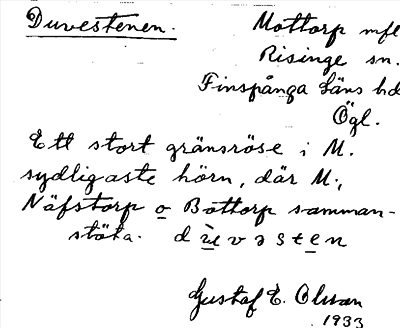 Duvestenen. Mottorp mfl
Risinge sn.
Finspånga läns hd
Ögl.
Ett stort gränsröse i M.
sydligaste hörn, där M.,
Näfstorp o Bottorp samman-
stöta. d ù̲ v ə s t e̲ n
Gustaf E. Olsson
1933